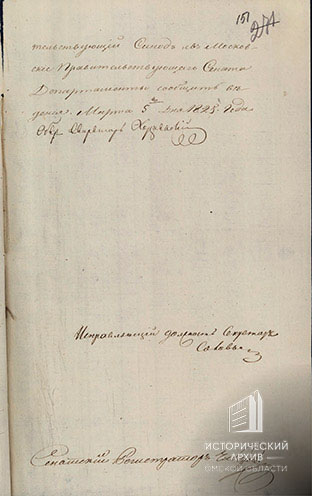 151
274
тельствующей Синодъ въ Московс-
кие Правительствующаго Сената
Департаменты сообщить ве-
дение. Марта 5 дня 1825 года
Обер Секретарь
Исправляющей должность Секретаря
Сенатский Регистраторъ
ИСТОРИЧЕСКИЙ
АРХИВ
ОМСКОЙ ОБЛАСТИ